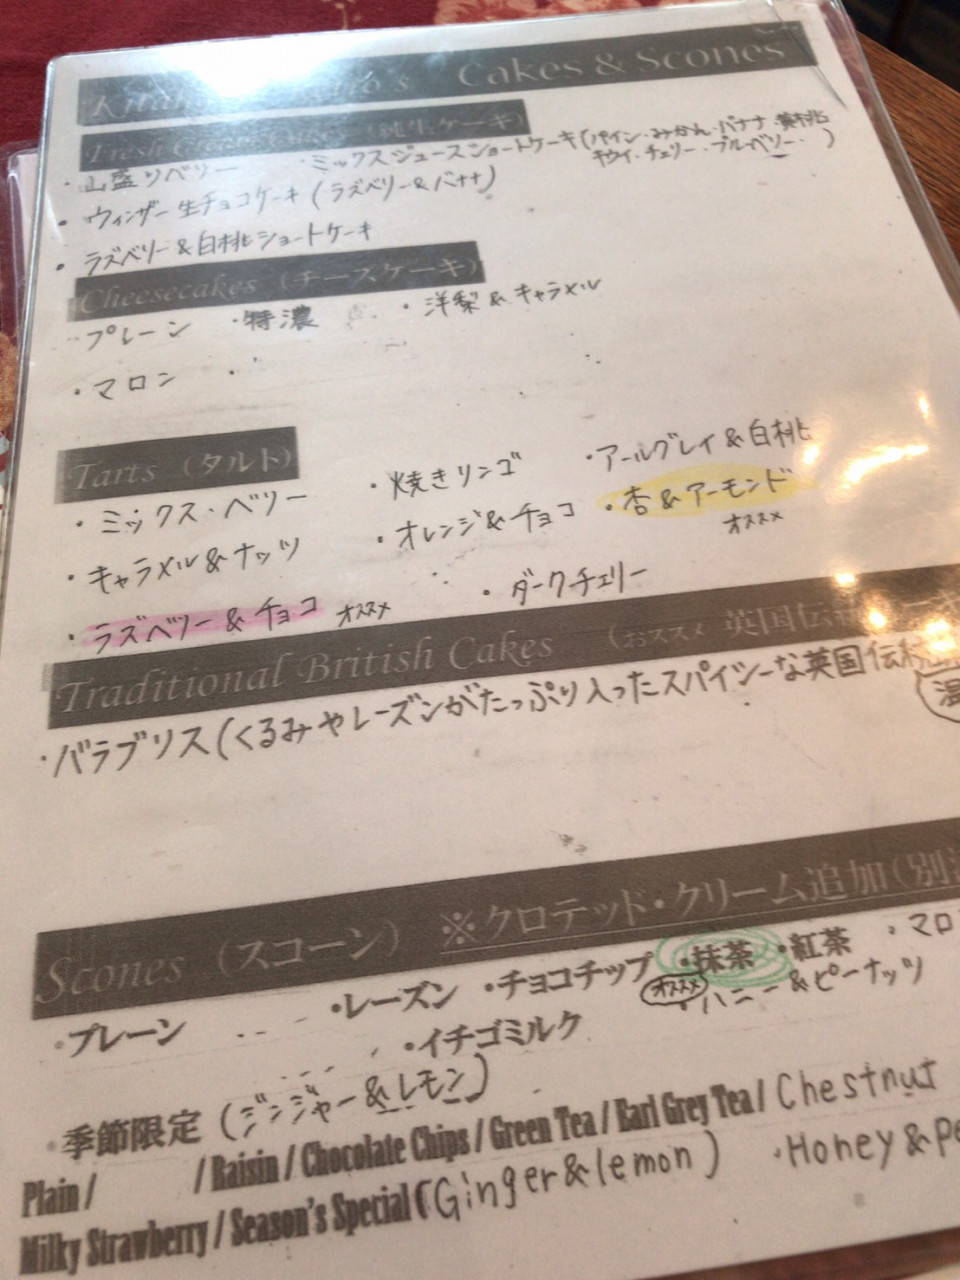 Cakes & Scones
Fresh Cream Cakes (純生ケーキ)
・山盛りベリー ・ミックスジュースショートケーキ(パイン・みかん・バナナ・黄桃
キウイ・チェリー・ブルーベリー・ )
・ウィンザー生チョコケーキ(ラズベリー&バナナ)
・ラズベリー&白桃ショートケーキ
Cheesecakes (チーズケーキ)
・プレーン ・特濃 ・洋梨&キャラメル
・マロン
Tarts (タルト)
・ミックス・ベリー ・焼きリンゴ ・アールグレイ&白桃
・キャラメル&ナッツ ・オレンジ&チョコ ・杏&アーモンド
オススメ
・ラズベリー&チョコ オススメ ・ダークチェリー
Traditional British Cakes (おススメ 英国伝統ケーキ
・バラブリス(くるみやレーズンがたっぷり入ったスパイシーな英国伝統
温
Scones (スコーン) ※クロテッド・クリーム追加(別
・プレーン ・レーズン ・チョコチップ ・抹茶 ・紅茶 ・マロ
オススメ
・イチゴミルク ・ハニー&ピーナッツ
・季節限定(ジンジャー&レモン)
Plain / / Raisin / Chocolate Chips / Green Tea / Earl Grey Tea / Chestnut
Milky Strawberry / Season's Special (Ginger&lemon) ・Honey&Pe